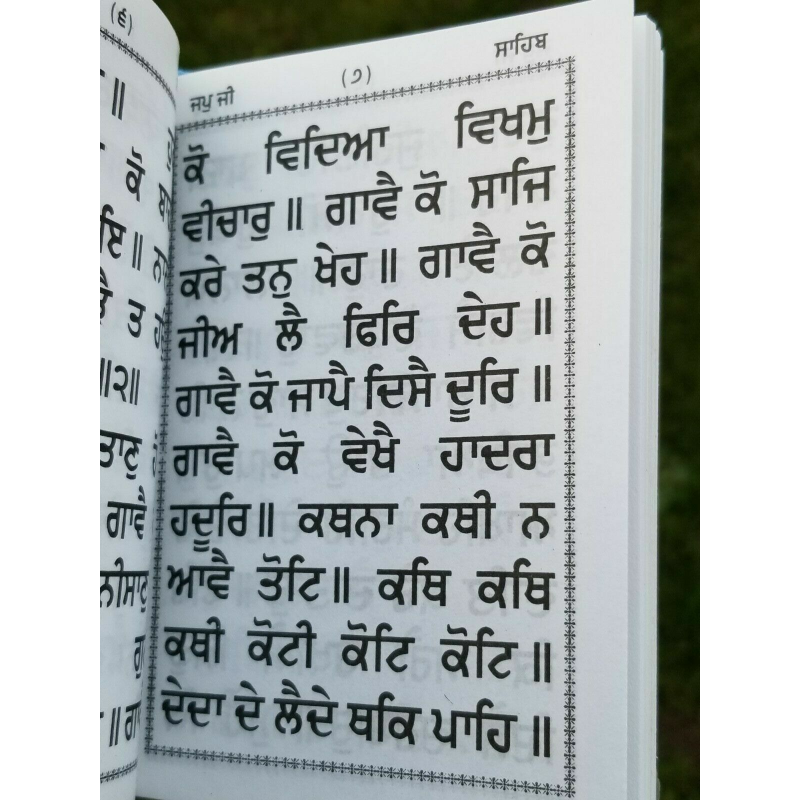 (੬)
ਕੋ
ਤੈ ਤ
॥੨॥
ਤਾਣੁ
ਗਾਵੈ
ਨੀਸਾਣੁ
ਜਪੁ ਜੀ (੭) ਸਾਹਿਬ
ਕੋ ਵਿਦਿਆ ਵਿਖਮੁ
ਵੀਚਾਰੁ ॥ ਗਾਵੈ ਕੋ ਸਾਜਿ
ਕਰੇ ਤਨੁ ਖੇਹ ॥ ਗਾਵੈ ਕੋ
ਜੀਅ ਲੈ ਫਿਰਿ ਦੇਹ ॥
ਗਾਵੈ ਕੋ ਜਾਪੈ ਦਿਸੈ ਦੂਰਿ ॥
ਗਾਵੈ ਕੋ ਵੇਖੈ ਹਾਦਰਾ
ਹਦੂਰਿ ॥ ਕਥਨਾ ਕਥੀ ਨ
ਆਵੈ ਤੋਟਿ ॥ ਕਥਿ ਕਥਿ
ਕਥੀ ਕੋਟੀ ਕੋਟਿ ਕੋਟਿ ॥
ਦੇਦਾ ਦੇ ਲੈਦੇ ਥਕਿ ਪਾਹਿ ॥